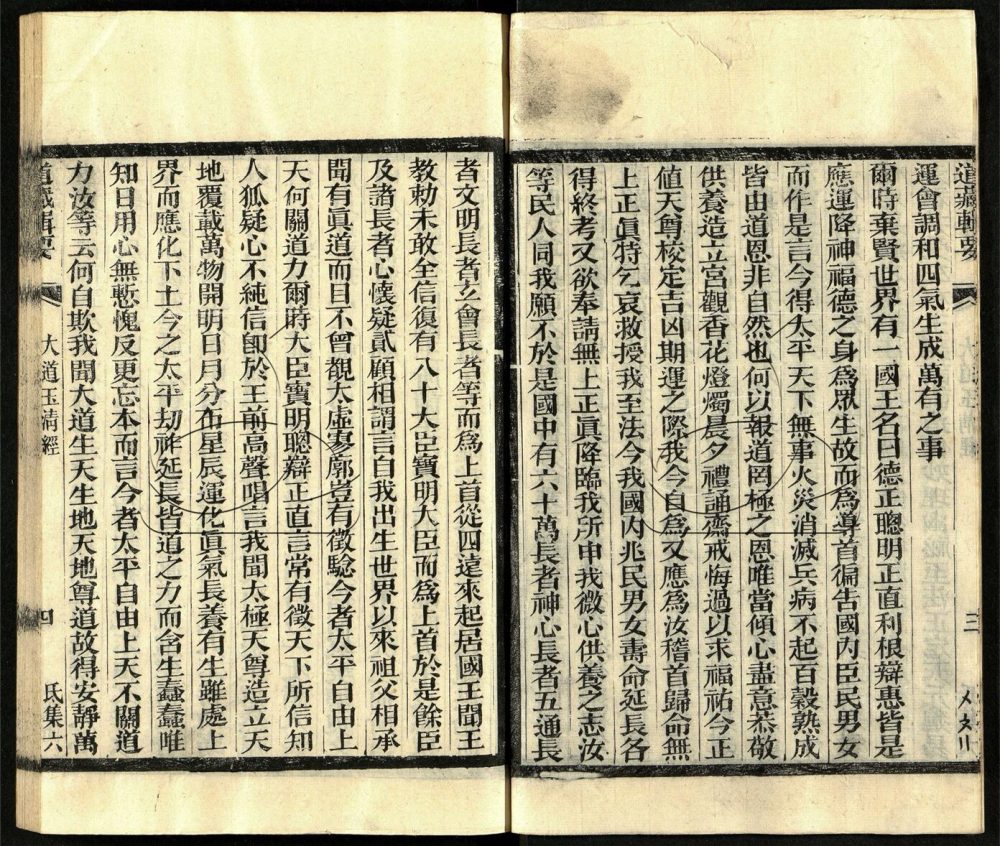 道藏輯要
運會調和四氣生成萬有之事
爾時棄賢世界有一國王名曰德正聰明正直利根辯惠皆是
應運降神福德之身爲眾生故而爲導首徧告國內臣民男女
而作是言今得太平天下無事火災消滅兵病不起百穀熟成
皆由道恩非自然也何以報道罔極之恩唯當傾心盡意恭敬
供養造立宮觀香花燈燭晨夕禮誦齋戒悔過以求福祐今正
値天尊校定吉凶期運之際我今自爲又應爲汝稽首歸命無
上正眞特乞哀救授我至法令我國內兆民男女壽命延長各
得終考又欲奉請無上正眞降臨我所申我微心供養之志汝
等民人同我願不於是國中有六十萬長者神心長者五通長
三
者文明長者玄會長者等而爲上首從四遠來起居國王聞王
教勅未敢全信復有八十大臣寶明大臣而爲上首於是餘臣
及諸長者心懷疑貳顧相謂言自我出生世界以來祖父相承
聞有眞道而目不曾覩太虛寥廓豈有徵驗今者太平自由上
天何關道力爾時大臣寶明聰辯正直言常有徵天下所信知
人狐疑心不純信卽於王前高聲唱言我聞太極天尊造立天
地覆載萬物開明日月分布星辰運化眞氣長養有生雖處上
界而應化下土今之太平劫祚延長皆道之力而含生蠢蠢唯
知日用心無慙愧反更忘本而言今者太平自由上天不關道
力汝等云何自欺我聞大道生天生地天地尊道故得安靜萬
道藏輯要
大道玉淸經
四
氐集六